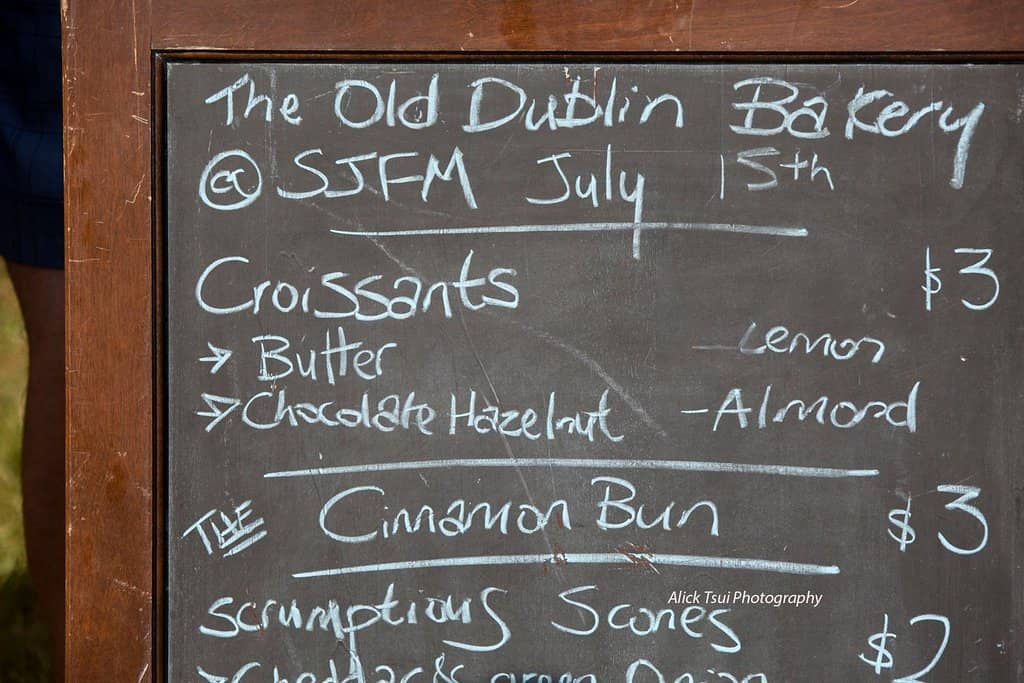 The Old Dublin Bakery
@ SJFM July 15th
Croissants $3
→ Butter - Lemon
→ Chocolate Hazelnut - Almond
THE Cinnamon Bun $3
Alick Tsui Photography
scrumptious Scones $2
→ Cheddar & green Onion